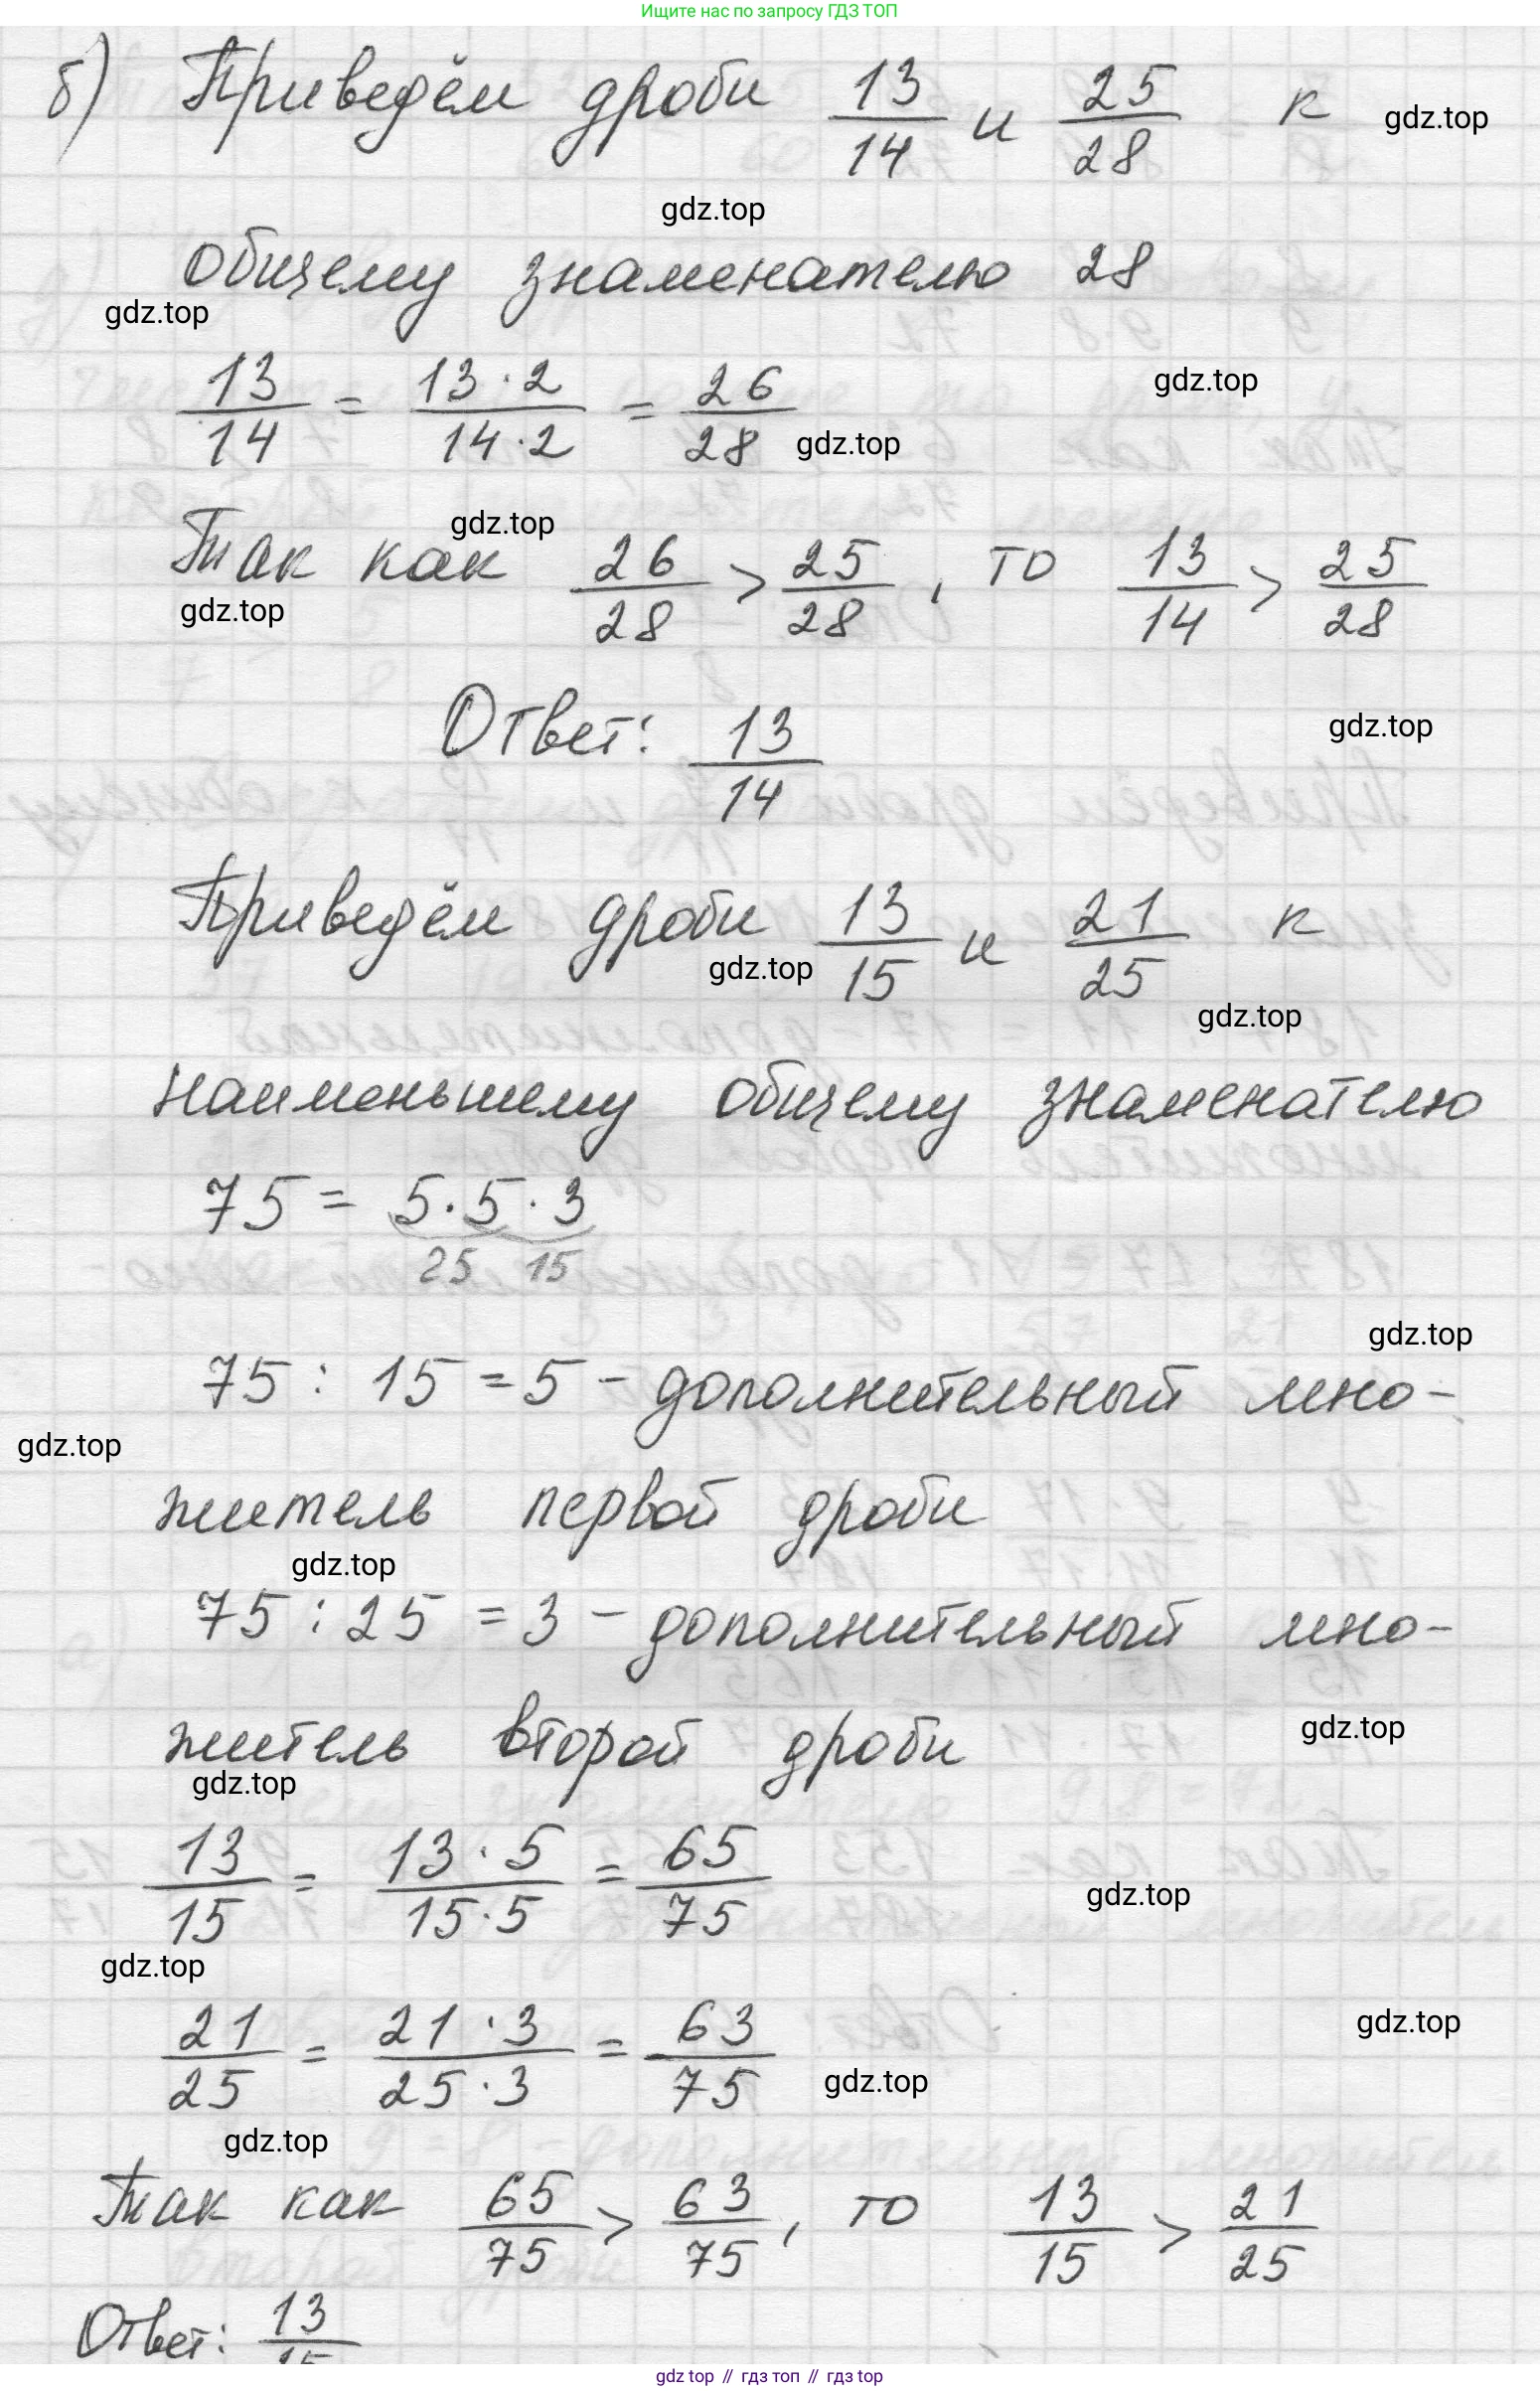 Ищите нас по запросу ГДЗ ТОП
б) Приведём дроби 13/14 и 25/28 к
gdz.top
gdz.top
общему знаменателю 28
gdz.top
13/14 = 13·2/14·2 = 26/28
gdz.top
gdz.top
gdz.top
Так как 26/28 > 25/28, то 13/14 > 25/28
gdz.top
Ответ: 13/14
gdz.top
Приведём дроби 13/15 и 21/25 к
gdz.top
gdz.top
наименьшему общему знаменателю
75 = 5·5·3
25 15
gdz.top
75 : 15 = 5 - дополнительный мно-
gdz.top
житель первой дроби
gdz.top
75 : 25 = 3 - дополнительный мно-
житель второй дроби
gdz.top
gdz.top
13/15 = 13·5/15·5 = 65/75
gdz.top
gdz.top
21/25 = 21·3/25·3 = 63/75
gdz.top
gdz.top
gdz.top
Так как 65/75 > 63/75, то 13/15 > 21/25
Ответ: 13/15
gdz top // гдз топ // гдз top